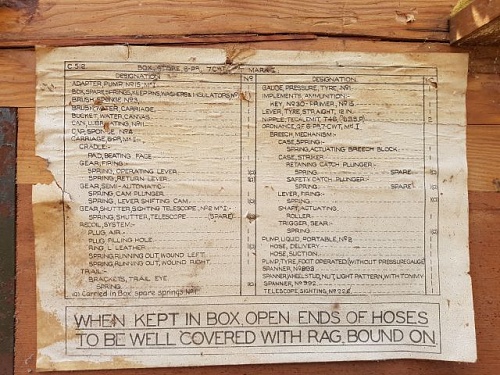 C.S.2 BOX, STORE, 6-PR, 7CWT, MARK I.
DESIGNATION Nº
ADAPTER, PUMP, Nº15, Mᴷ I
BOX, SPARE SPRINGS, KEEP PINS, WASHERS & INSULATORS Nº1
BRUSH, SPONGE, Nº3
BRUSH, WATER, CARRIAGE
BUCKET, WATER, CANVAS
CAN, LUBRICATING, Nº1
CAP, SPONGE, Nº4
CARRIAGE, 6-PR, Mᴷ I:-
CRADLE:-
PAD, BEATING FACE
GEAR, FIRING:-
SPRING, OPERATING LEVER (a)
SPRING, RETURN LEVER (a)
GEAR, SEMI-AUTOMATIC:-
SPRING, CAM PLUNGER
SPRING, LEVER SHIFTING CAM (a)
GEAR, SHUTTER SIGHTING TELESCOPE, Nº2 Mᴷ I:-
SPRING, SHUTTER, TELESCOPE (SPARE) (a)
RECOIL, SYSTEM:-
PLUG, AIR
PLUG FILLING HOLE
RING, L LEATHER (a)
SPRING, RUNNING OUT, WOUND LEFT
SPRING, RUNNING OUT, WOUND RIGHT
TRAIL:-
BRACKETS, TRAIL EYE
SPRING (a)
(a) Carried in Box spare springs Nº1
DESIGNATION
GAUGE, PRESSURE, TYRE, Nº1
IMPLEMENTS, AMMUNITION:-
KEY, Nº30 - PRIMER, Nº15
LEVER, TYRE STRAIGHT, 12 IN.
NIPPLE, TECALEMIT, T46
ORDNANCE, QF 6-PR, 7-CWT, Mᴷ I
BREECH MECHANISM:-
CASE, SPRING:-
SPRING, ACTUATING BREECH BLOCK
CASE, STRIKER
RETAINING CATCH PLUNGER:-
SPRING SPARE (a)
SAFETY CATCH PLUNGER:-
SPRING SPARE (a)
LEVER, FIRING:-
SPRING (a)
SHAFT, ACTUATING
ROLLER
TRIGGER, SEAR:-
SPRING (a)
PUMP, LIQUID, PORTABLE, Nº2
HOSE, DELIVERY
HOSE, SUCTION
PUMP, TYRE, FOOT OPERATED, WITHOUT PRESSURE GAUGE
SPANNER, Nº803
SPANNER, WHEEL STUD, NUT, LIGHT PATTERN, WITH TOMMY
SPANNER, Nº992
TELESCOPE, SIGHTING, Nº22
WHEN KEPT IN BOX, OPEN ENDS OF HOSES
TO BE WELL COVERED WITH RAG, BOUND ON.